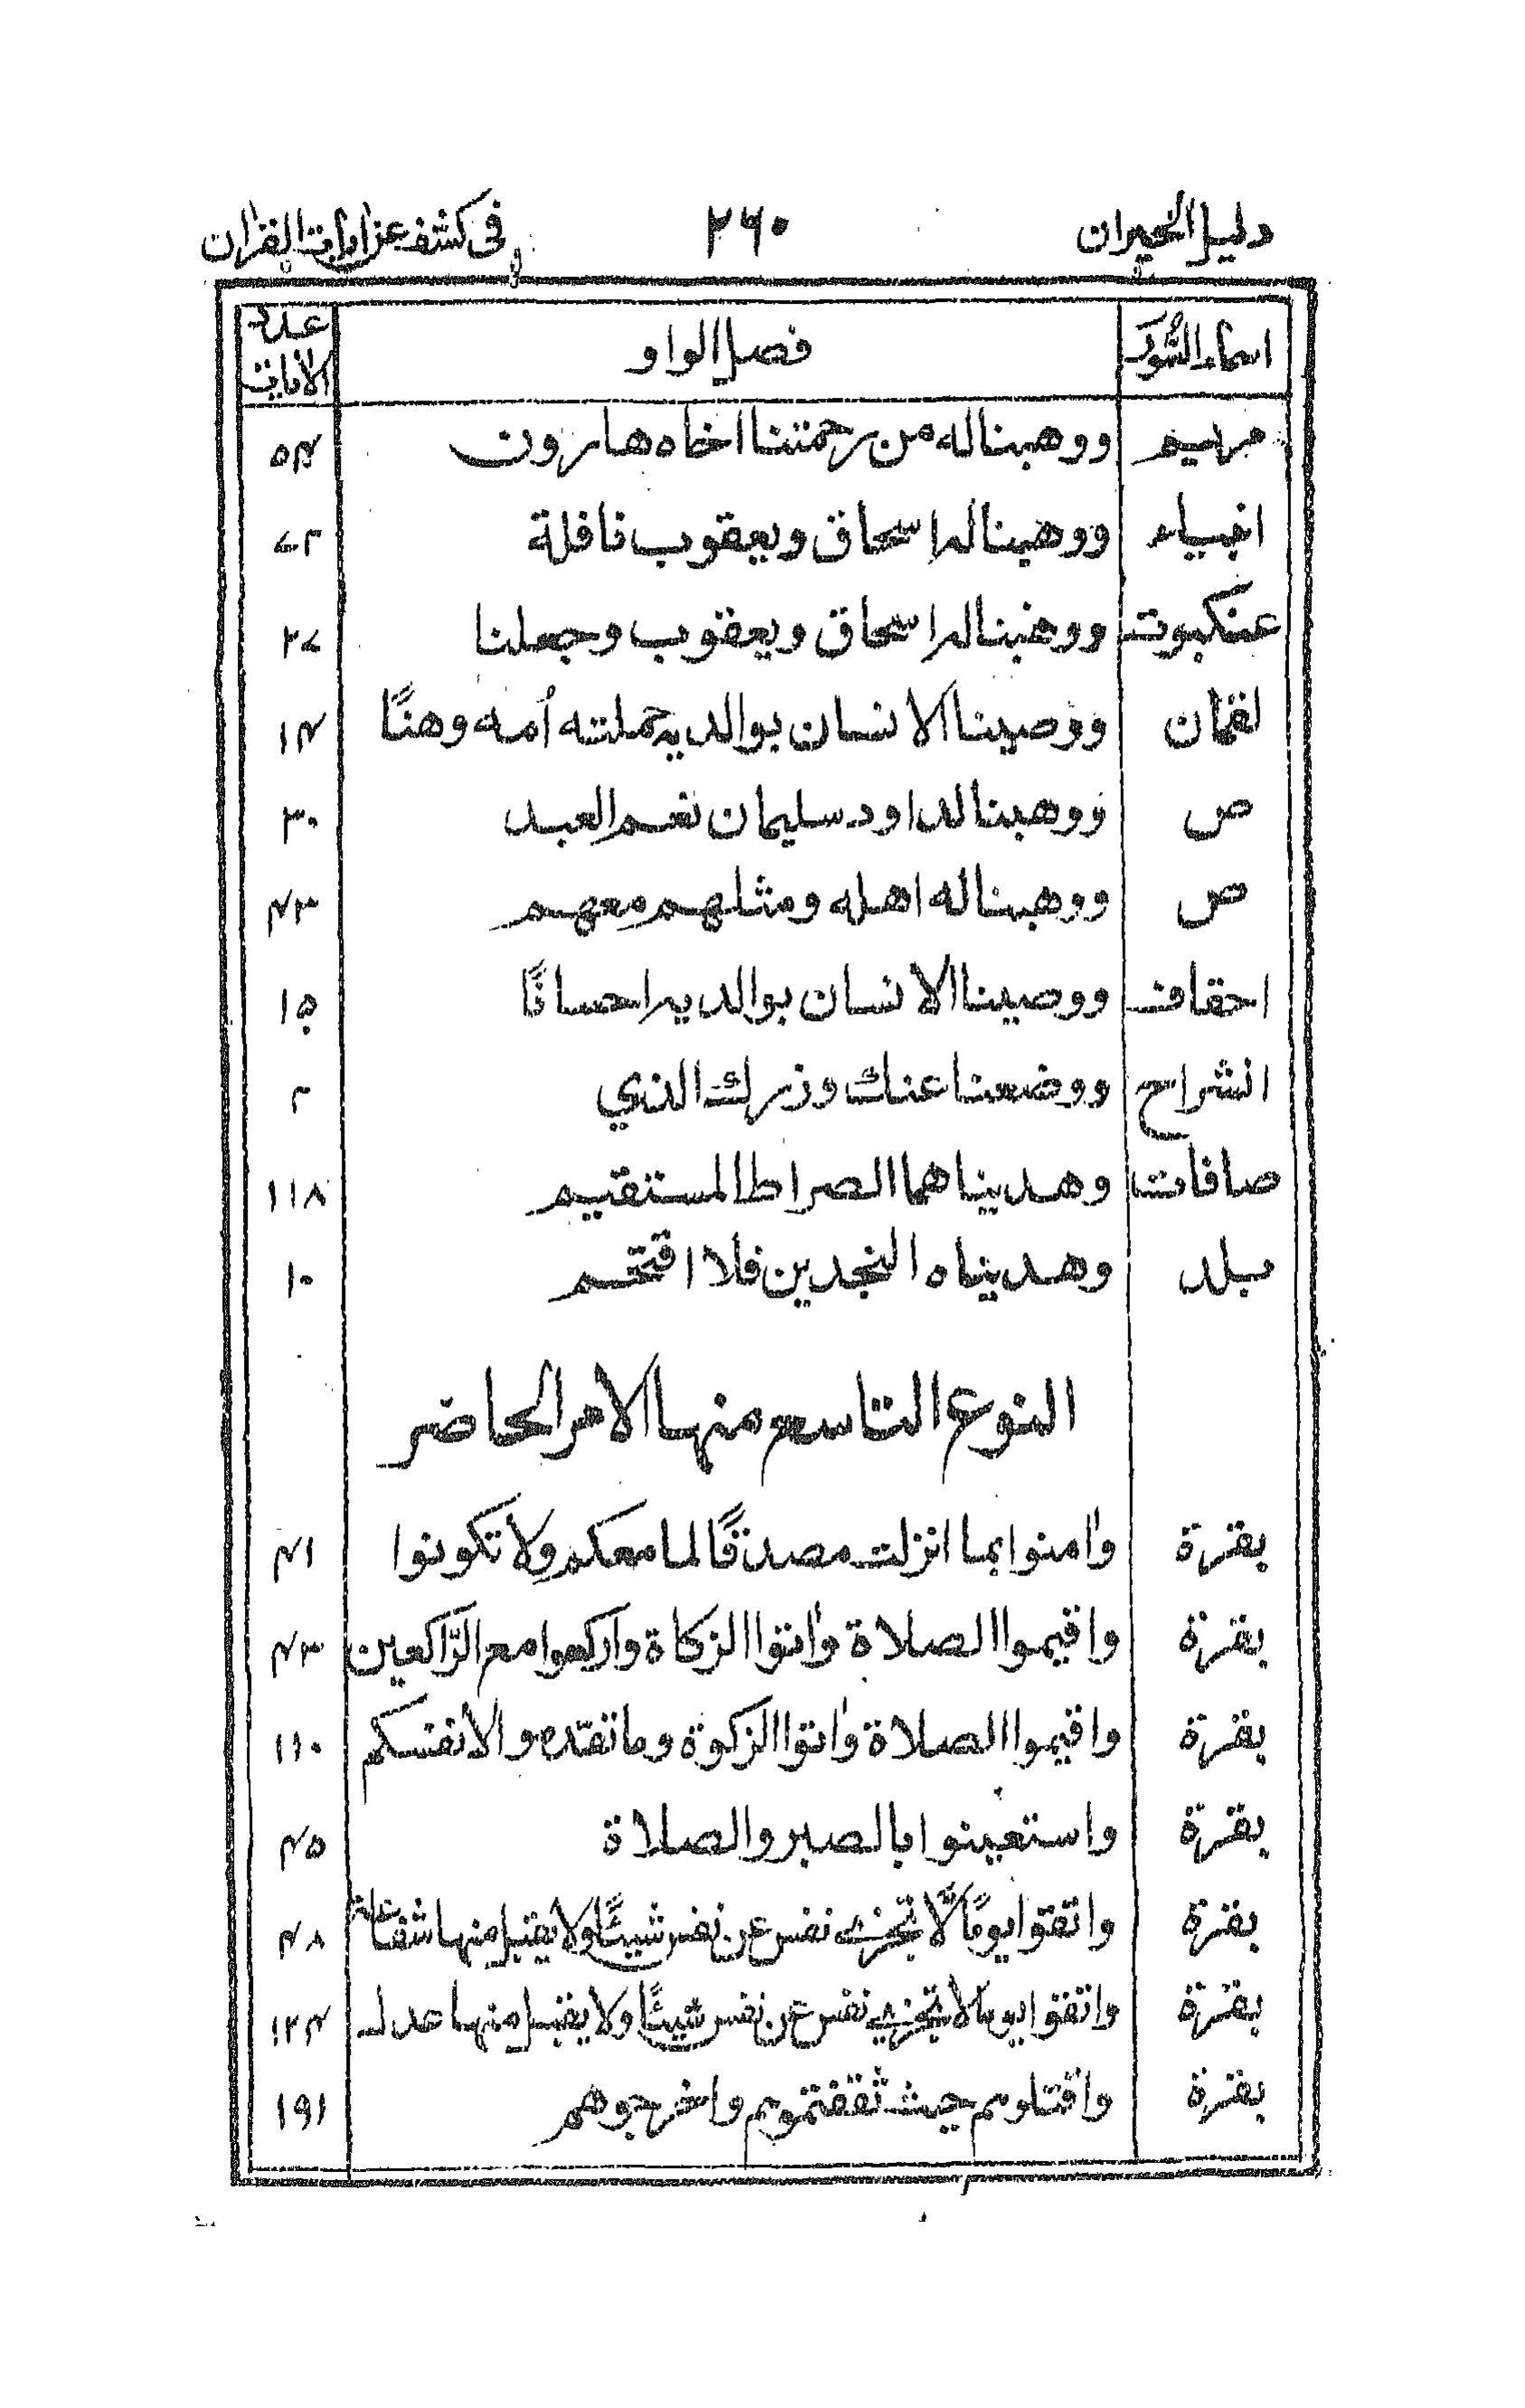 دليل الحيران ٢٦٠ في كشف عن اٰيات القران
اسماء السُّور فصل الواو عدد الاٰيات
مريم ووهبنا له من رحمتنا اخاه هارون ٥٣
انبياء ووهبنا له اسحاق ويعقوب نافلة ٧٢
عنكبوت ووهبنا له اسحاق ويعقوب وجعلنا ٢٧
لقمان ووصينا الانسان بوالديه حملته اُمه وهنًا ١٤
ص ووهبنا لداود سليمان نعم العبد ٣٠
ص ووهبنا له اهله ومثلهم معهم ٤٣
احقاف ووصينا الانسان بوالديه احسانًا ١٥
انشراح ووضعنا عنك وزرك الذي ٢
صافات وهديناهما الصراط المستقيم ١١٨
بلد وهديناه النجدين فلا اقتحم ١٠
النوع التاسع منها الامر الحاضر
بقرة واٰمنوا بما انزلت مصدقًا لما معكم ولا تكونوا ٤١
بقرة واقيموا الصلاة واٰتوا الزكاة واركعوا مع الرّاكعين ٤٣
بقرة واقيموا الصلاة واٰتوا الزكوة وما تقدّموا لانفسكم ١١٠
بقرة واستعينوا بالصبر والصلاة ٤٥
بقرة واتقوا يومًا لّا تجزي نفس عن نفس شيئًا ولا يقبل منها شفاعة ٤٨
بقرة واتقوا يوما لا تجزي نفس عن نفس شيئًا ولا يقبل منها عدل ١٢٣
بقرة واقتلوهم حيث ثقفتموهم واخرجوهم ١٩١